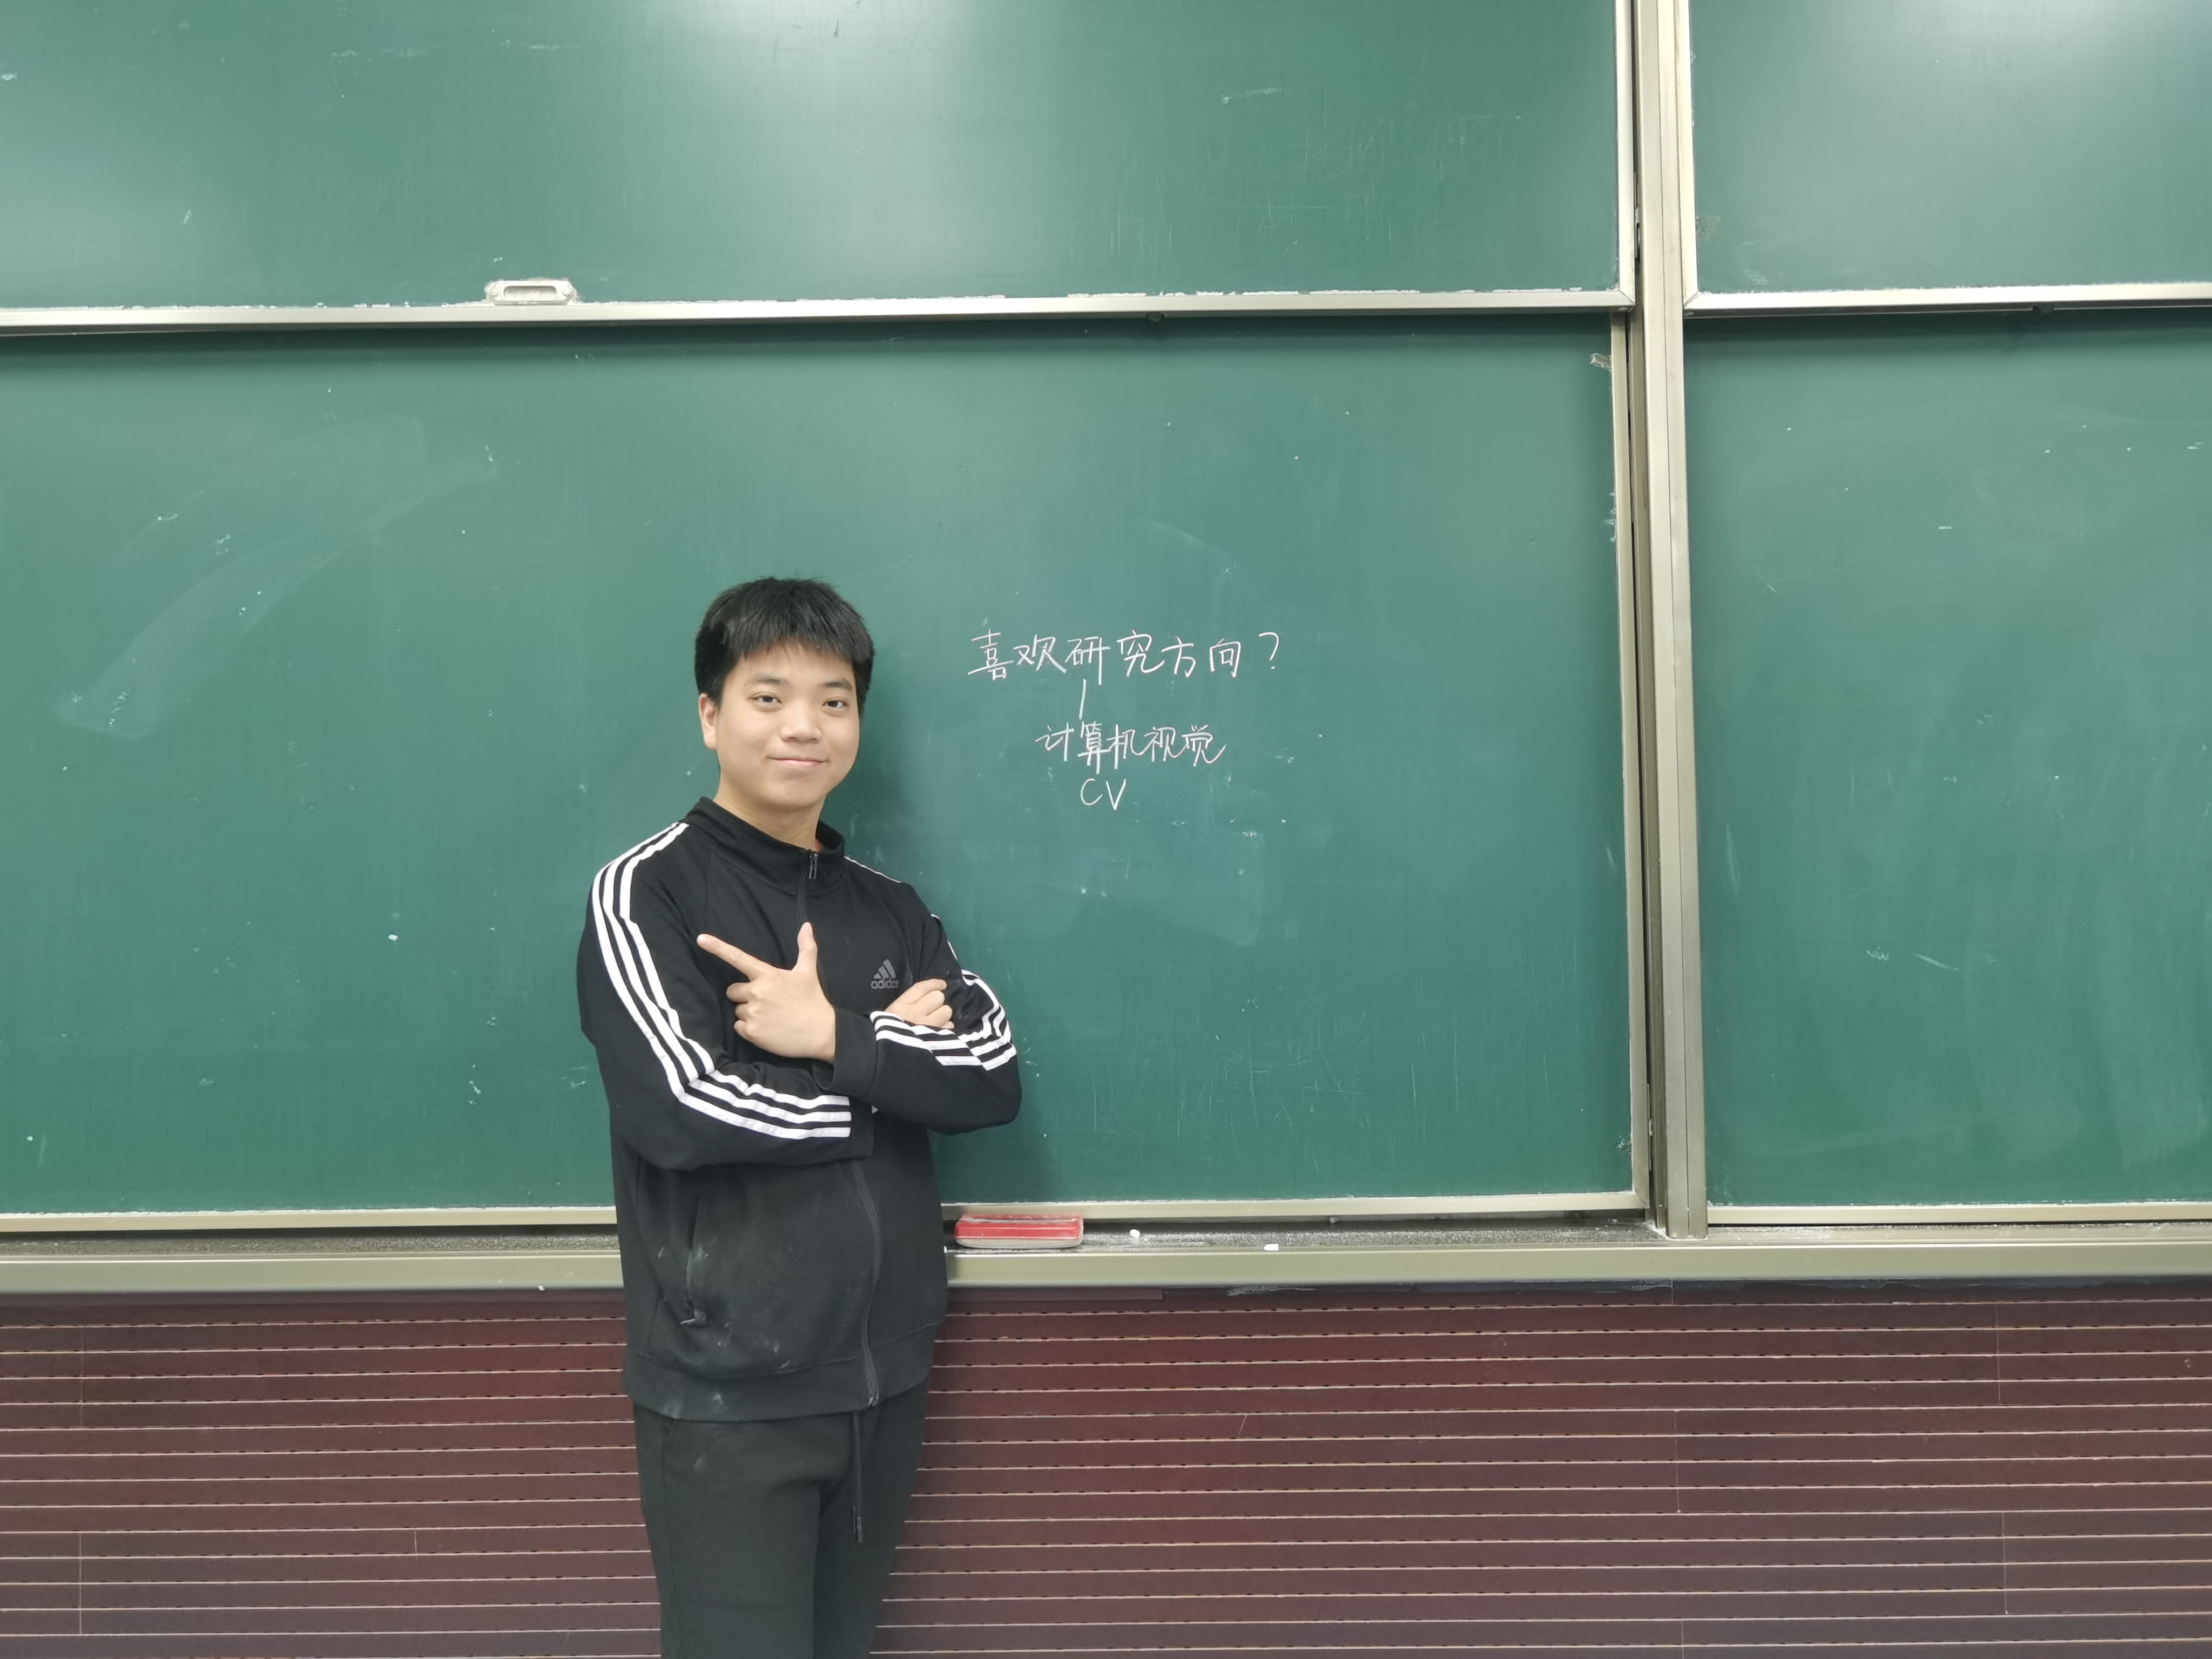 喜欢研究方向?
计算机视觉
CV
adidas